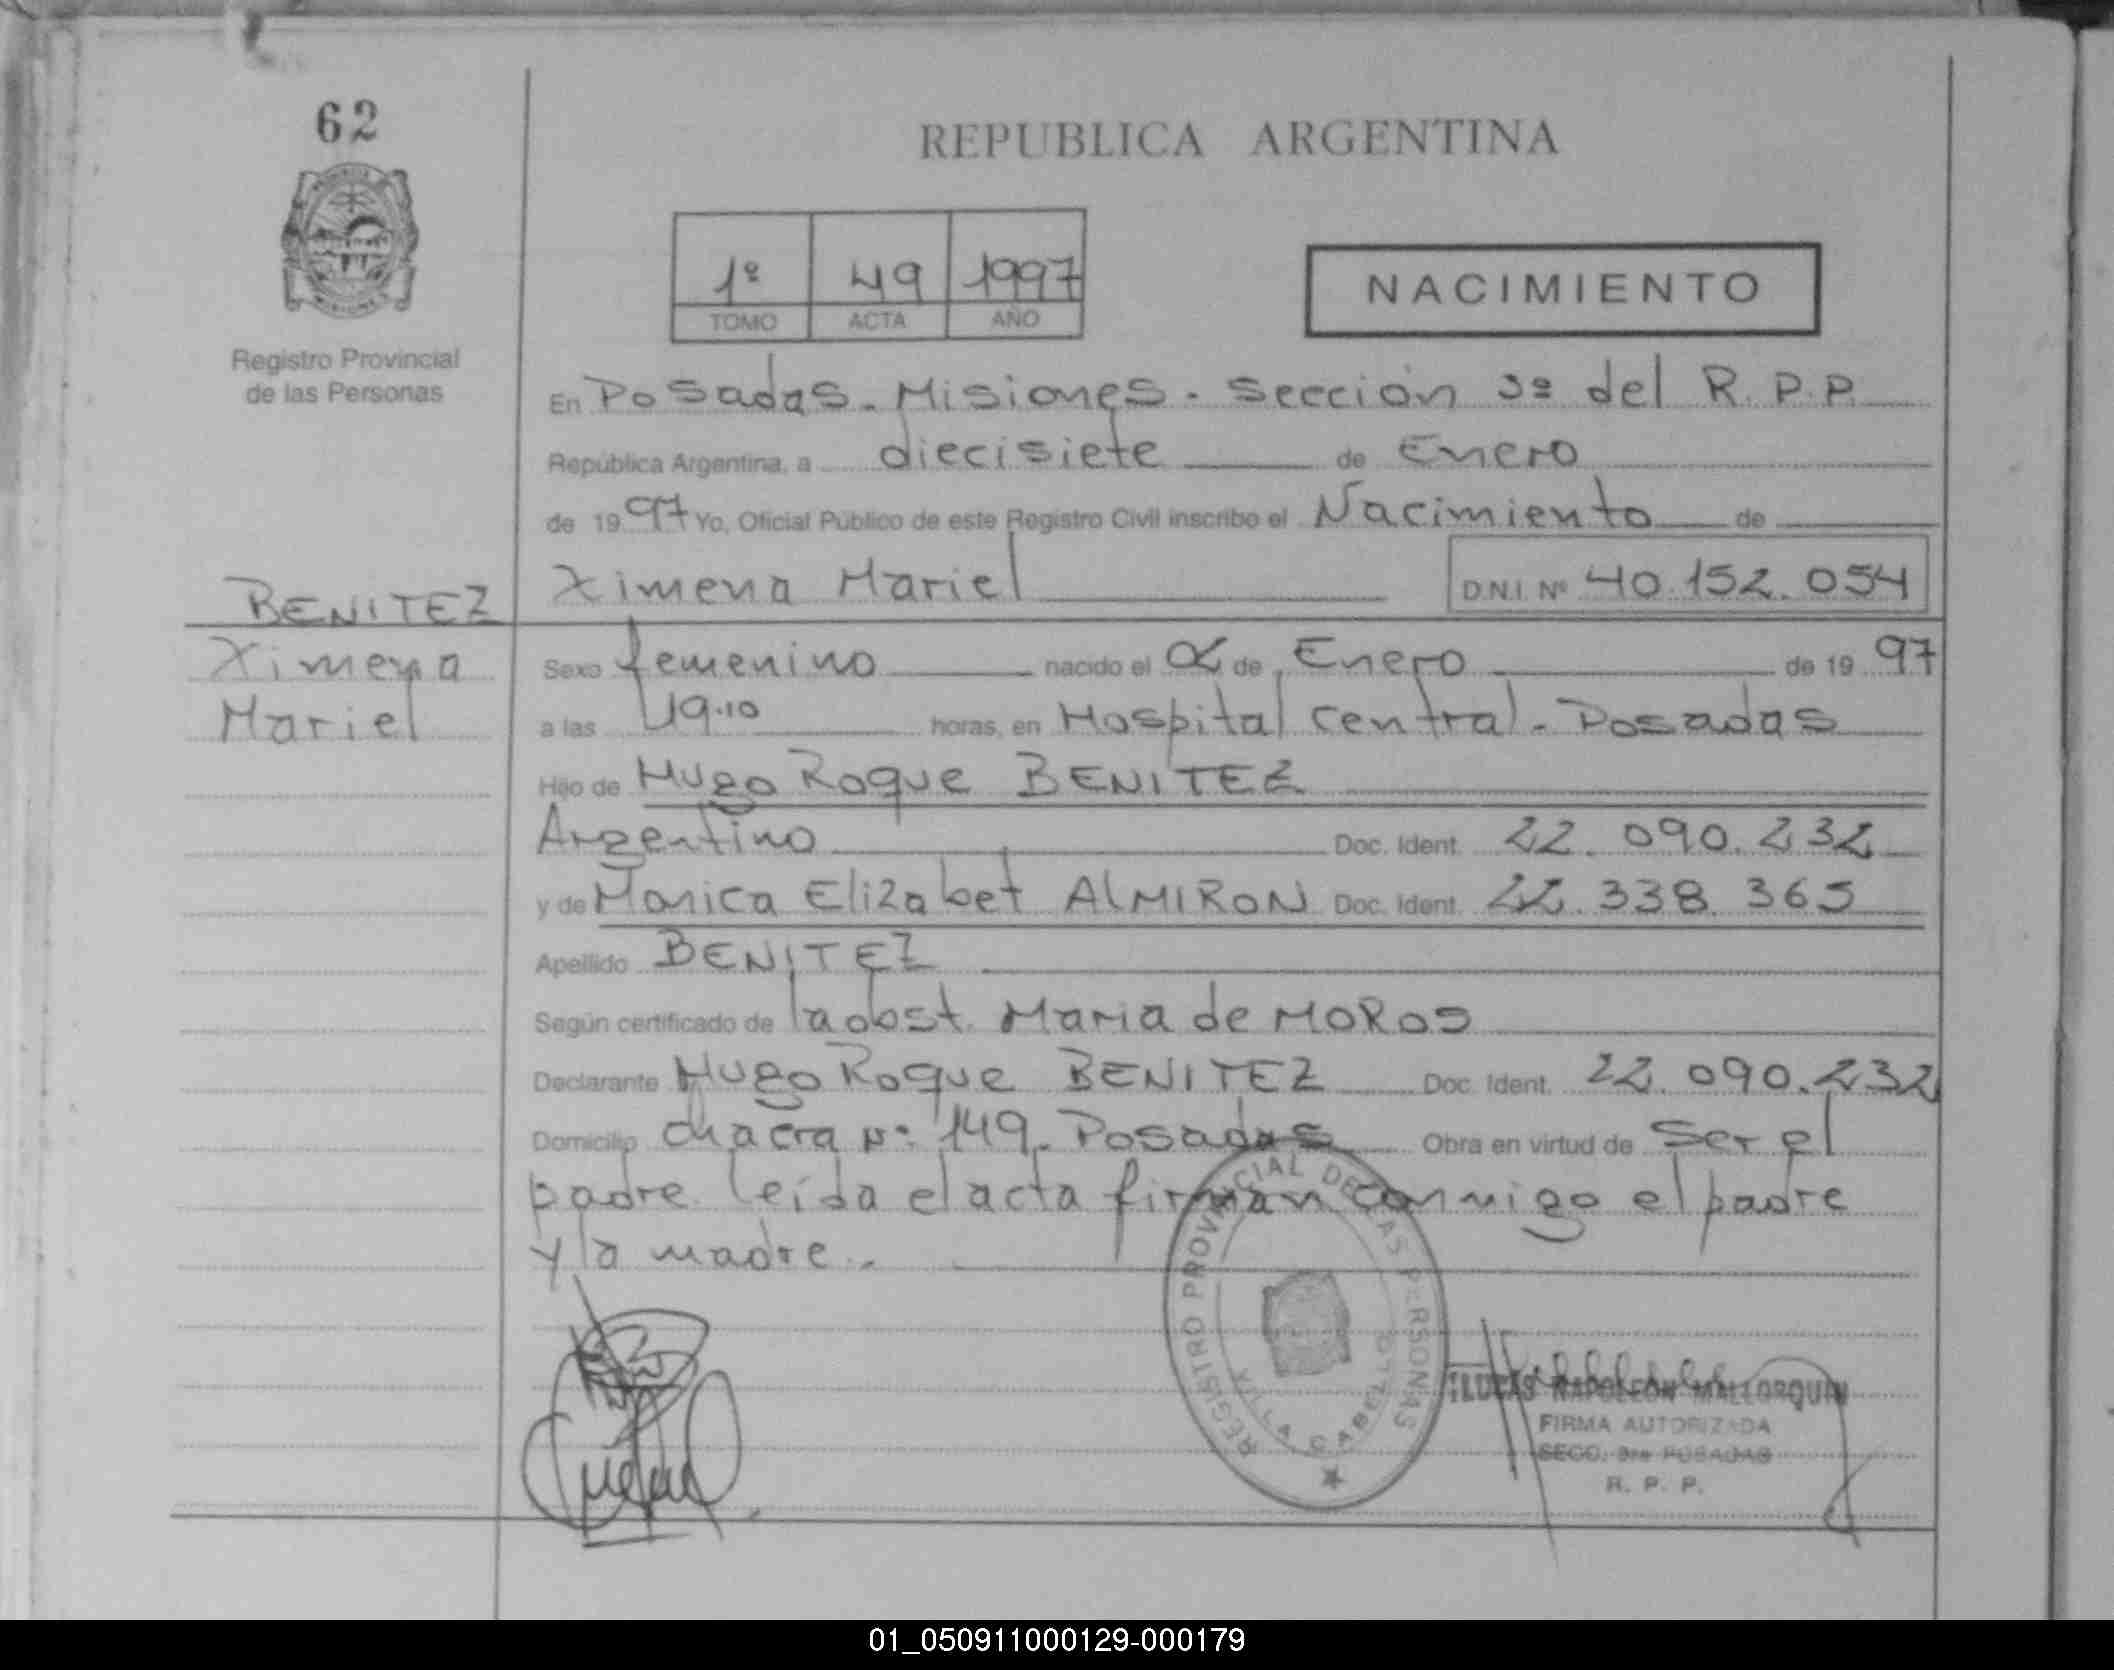 62
REPUBLICA ARGENTINA
1º 49 1997
TOMO ACTA AÑO
NACIMIENTO
Registro Provincial
de las Personas
En Posadas. Misiones. Sección 3º del R.P.P.
República Argentina, a diecisiete de Enero
de 1997 Yo, Oficial Público de este Registro Civil inscribo el Nacimiento de
Ximena Mariel D.N.I. Nº 40.152.054
BENITEZ
Ximena
Mariel
Sexo femenino nacido el de Enero de 1997
a las 19.10 horas, en Hospital Central. Posadas
Hijo de Hugo Roque BENITEZ
Argentino Doc. Ident. 22.090.232
y de Monica Elizabet ALMIRON Doc. Ident. 22.338.365
Apellido BENITEZ
Según certificado de la obst. Maria de MOROS
Declarante Hugo Roque BENITEZ Doc. Ident. 22.090.232
Domicilio chacra Nº 149. Posadas Obra en virtud de Ser el
padre. leída el acta firman conmigo el padre
y la madre..
REGISTRO PROVINCIAL DE LAS PERSONAS
VILLA CABELLO
LUCAS NAPOLEON MALLORQUIN
FIRMA AUTORIZADA
SECC. 3ra POSADAS
R. P. P.
01_050911000129-000179